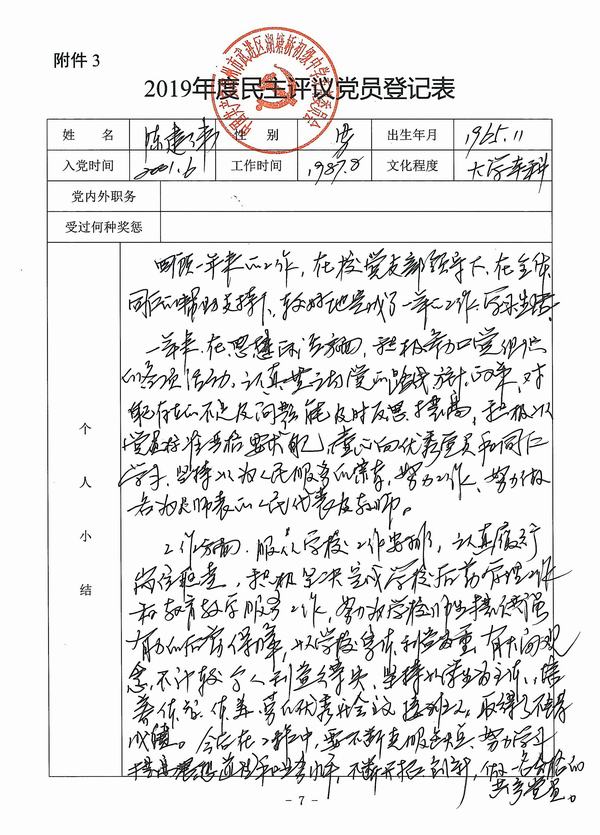 附件 3
2019年度民主评议党员登记表
中国共产党 州市武进区湖塘桥初级中学 委员会
姓 名 陈建伟 性 别 男 出生年月 1965.11
入党时间 2001.6 工作时间 1987.8 文化程度 大学本科
党内外职务
受过何种奖惩
个人小结
回顾一年来的工作，在校党支部领导下、在全体
同仁的帮助支持下，较好地完成了一年的工作、学习
一年来，在思想 方面，积极参加党组织
的各项活动，认真 党的路线方针、政策，对
存在的不足及问题能及时反思、提高，积极以
党员标准严格要求自己，虚心向优秀党员和同仁
学习，坚持以为人民服务 ，努力工作、努力做
名为人师表的人民代表 教师。
工作方面，服从学校工作安排，认真履行
岗位职责，积极 完成学校后勤管理工作
和教育教学服务工作，努力为学校师生提供强
有力的后勤保障，以学校集体利益为重，有大局观
念，不计较个人利益与得失，坚持以学生为主体，培
养体 、体美、劳 优秀 ，取得了不错
成绩。今后在工作中，要不断克服缺点、努力学习
提高思想道德 水平，不断开拓创新，做一名合格的
共产党员。
- 7 -